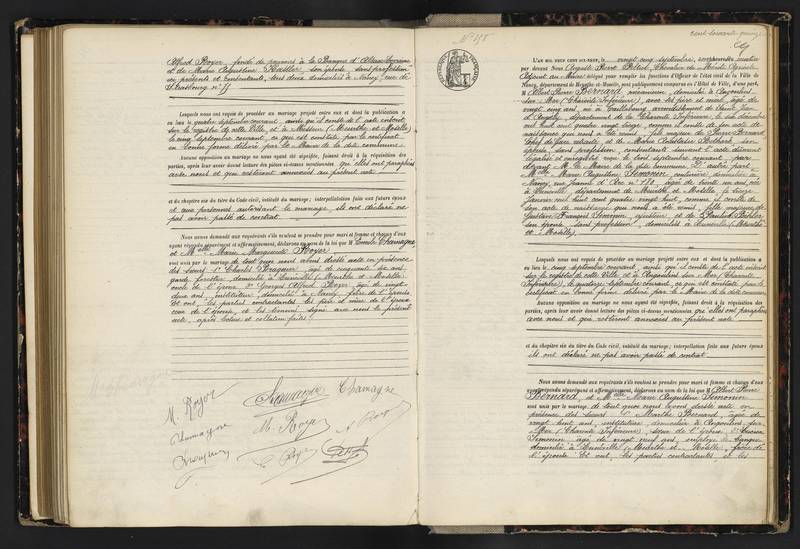 Alfred Royer, fondé de pouvoirs à la Banque d'Alsace Lorraine
et de Marie Augustine Hastler, son épouse, sans profession
ici présents et consentants, tous deux domiciliés à Nancy, rue de
Strasbourg n° 55
Lesquels nous ont requis de procéder au mariage projeté entre eux et dont la publication a
eu lieu le quatre septembre courant, ainsi qu'il conste de l'acte inscrit
sur le registre de cette Ville et à (Meurthe et Moselle)
le cinq septembre courant, ce qui est constaté par le certificat
en bonne forme délivré par le Maire de la dite commune.
Aucune opposition au mariage ne nous ayant été signifiée, faisant droit à la réquisition des
parties, après leur avoir donné lecture des pièces ci-dessus mentionnées qui elles ont paraphées
avec nous et qui resteront annexées au présent acte
et du chapitre six du titre du Code civil, intitulé du mariage; interpellation faite aux futurs époux
et aux personnes autorisant le mariage, ils ont déclaré ne
pas avoir passé de contrat.
Nous avons demandé aux requérants s'ils veulent se prendre pour mari et femme et chacun d'eux
ayant répondu séparément et affirmativement, déclarons au nom de la loi que M. Chamagne
et Melle Marie Marguerite Royer
sont unis par le mariage de tout quoi nous avons dressé acte en présence
des sieurs 1° Charles âgé de cinquante six ans,
garde forestier, domicilié à Lunéville (Meurthe et Moselle)
oncle de l'époux 2° Georges Alfred Royer, âgé de vingt-
deux ans, instituteur, domicilié à Nancy, frère de l'épouse.
Et ont, les parties contractantes, les père et mère de l'épouse
de l'épouse, et les témoins signé avec nous le présent
acte, après lecture et collation faites.
M. Royer
Chamagne
Chamagne
M. Royer
A. Royer
Royer
N° 758
L'an mil neuf cent dix-neuf, le vingt cinq septembre, heures du matin
par devant Nous Auguste Pierre Chevalier du Mérite Agricole
Adjoint au Maire délégué pour remplir les fonctions d'Officier de l'état civil de la Ville de
Nancy, département de Meurthe-et-Moselle, sont publiquement comparus en l'Hôtel de Ville, d'une part,
M. Albert Pierre Bernard, mécanicien, domicilié à Angoulins
sur Mer (Charente Inférieure) avec ses père et mère, âgé de
vingt cinq ans, né à Taillebourg, arrondissement de Saint Jean
d'Angély, département de la Charente Inférieure, le six décembre
mil huit cent quatre vingt treize, comme il conste de son acte de
naissance qui nous a été remis, fils majeur de Pierre Bernard,
chef de gare retraité, et de Marie son
épouse, sans profession, consentants suivant l'acte dûment
légalisé et enregistré reçu le huit septembre courant par
devant M. le Maire de la dite commune. D'autre part,
Melle Marie Augustine Simonin, couturière, domiciliée à
Nancy, rue Jeanne d'Arc n° 180, âgée de trente un ans, née
à Lunéville, département de Meurthe et Moselle, le treize
janvier mil huit cent quatre vingt huit, comme il conste de
son acte de naissance qui nous a été remis, fille majeure de
Gustave François Simonin, ajusteur, et de
son épouse, sans profession, domiciliés à Lunéville (Meurthe
et Moselle).
Lesquels nous ont requis de procéder au mariage projeté entre eux et dont la publication a
eu lieu le cinq septembre courant, ainsi qu'il conste de l'acte inscrit
sur le registre de cette Ville et à Angoulins sur Mer (Charente
Inférieure), le quatorze septembre courant, ce qui est constaté par le
certificat en bonne forme délivré par le Maire de la dite commune
Aucune opposition au mariage ne nous ayant été signifiée, faisant droit à la réquisition des
parties, après leur avoir donné lecture des pièces ci-dessus mentionnées qui elles ont paraphées
avec nous et qui resteront annexées au présent acte
et du chapitre six du titre du Code civil, intitulé du mariage; interpellation faite aux futurs époux
ils ont déclaré ne pas avoir passé de contrat.
Nous avons demandé aux requérants s'ils veulent se prendre pour mari et femme et chacun d'eux
ayant répondu séparément et affirmativement, déclarons au nom de la loi que M. Albert Pierre
Bernard, et Melle Marie Augustine Simonin
sont unis par le mariage de tout quoi nous avons dressé acte en
présence des sieurs 1° Marthe Bernard, âgée de
vingt huit ans, institutrice, domiciliée à Angoulins sur
Mer (Charente Inférieure), sœur de l'époux, 2° Lucien
Simonin, âgé de vingt neuf ans, employé de banque,
domicilié à Lunéville (Meurthe et Moselle), frère de
l'épouse. Et ont, les parties contractantes, et les